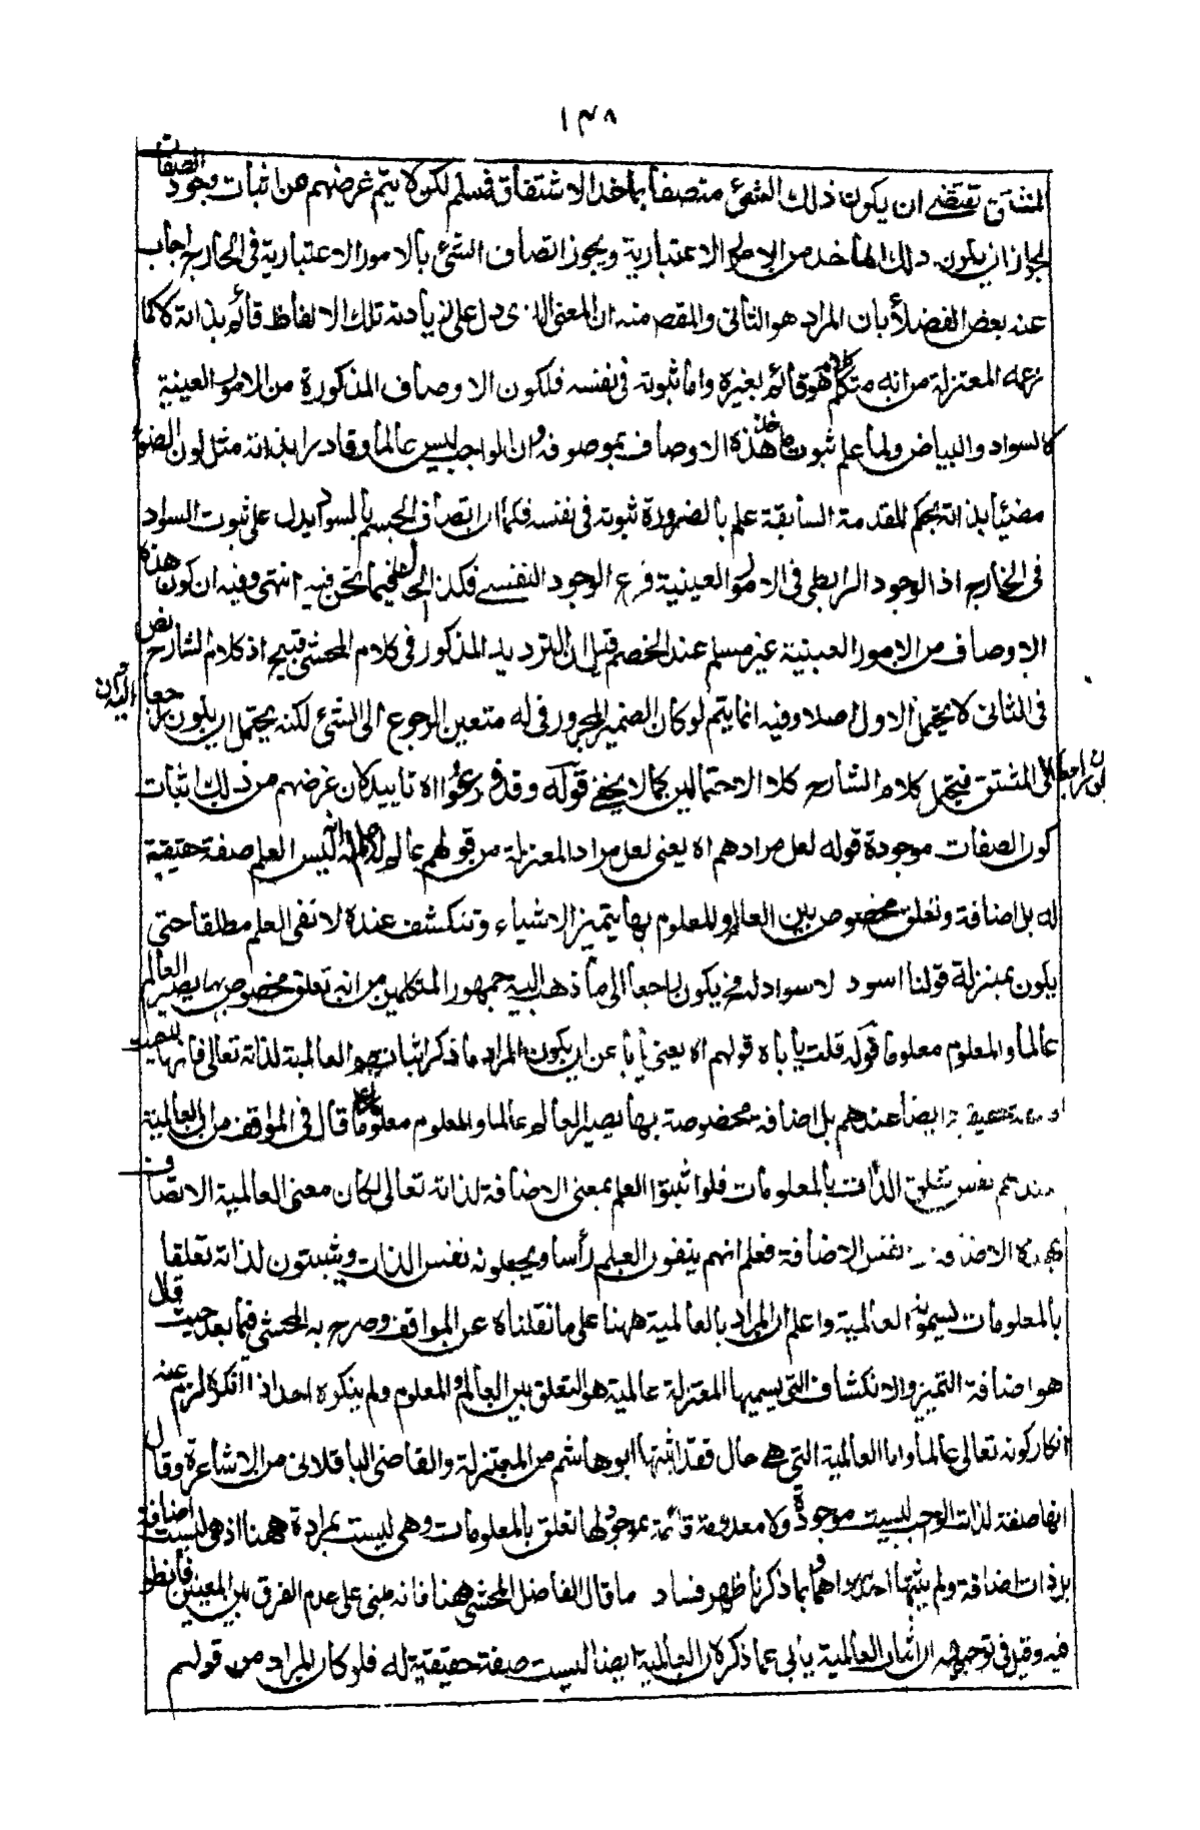 ١٣٨
المشتق تقتضى ان يكون ذلك الشئ متصفا بمأخذ الاشتقاق فمسلم لكن لا يتم غرضهم من اثبات وجود الصفات
لجواز ان يكون ذلك المأخذ من الامور الاعتبارية ويجوز اتصاف الشئ بالامور الاعتبارية فى الخارج اجاب
عنه بعض الفضلاء بان المراد هو الثانى والمقصد منه ان المعنى الذى دل على زيادته تلك الالفاظ قائم بذاته لا كما
زعمه المعتزلة من انه متكلم بكلام هو قائم بغيره واما ثبوته فى نفسه فلكون الاوصاف المذكورة من الامور العينية
كالسواد والبياض ولما علم ثبوت هذه الاوصاف بموصوفه وان الواجب ليس عالما وقادرا بذاته مثل لون الضوء
مضيئا بذاته بحكم المقدمة السابقة علم بالضرورة ثبوته فى نفسه فكما ان اتصاف الجسم بالسواد يدل على ثبوت السواد
فى الخارج اذ الوجود الرابطى فى الامور العينية فرع الوجود النفسى فكذا الحال فيما نحن فيه انتهى وفيه ان كون هذه
الاوصاف من الامور العينية غير مسلم عند الخصم قيل ان الترديد المذكور فى كلام المحشى قبيح اذ كلام الشارح نص
فى الثانى لا يحتمل الاول اصلا وفيه انما يتم لو كان الضمير المجرور فى له متعين الرجوع الى الشئ لكنه يحتمل ان يكون راجعا
الى المشتق فيحتمل كلام الشارح كلا الاحتمالين كما لا يخفى قوله وقد فرعوا اه تاييد لان غرضهم من ذلك اثبات
كون الصفات موجودة قوله لعل مرادهم اه يعنى لعل مراد المعتزلة من قولهم عالم لا علم له انه ليس العلم صفة حقيقية
له بل اضافة وتعلق مخصوص بين العالم والمعلوم بها يتميز الاشياء وتنكشف عنده لا نفى العلم مطلقا حتى
يكون بمنزلة قولنا اسود لا سواد له فح يكون راجعا الى ما ذهب اليه جمهور المتكلمين من انه تعلق مخصوص بها يصير العالم
عالما والمعلوم معلوما قوله قلت يأباه قولهم اه يعنى يأبا عن ان يكون المراد ما ذكر اثباتهم العالمية لذاته تعالى فانها ليست
صفة حقيقية ايضا عندهم بل اضافة مخصوصة بها يصير العالم عالما والمعلوم معلوما قال فى المواقف من ان العالمية
عندهم نفس تعلق الذات بالمعلومات فلو اثبتوا العلم بمعنى الاضافة لذاته تعالى لكان معنى العالمية الاتصاف
بهذه الاضافة نفس الاضافة فعلم انهم ينفون العلم رأسا ويجعلونه نفس الذات ويثبتون لذاته تعلقا
بالمعلومات يسمونه العالمية واعلم ان المراد بالعالمية ههنا على ما نقلناه عن المواقف وصرح به المحشى فيما بعد حيث قال
هو اضافة التميز والانكشاف التى يسميها المعتزلة عالمية هو التعلق بين العالم والمعلوم ولم ينكره احد اذ انكره لزم عنه
انكار كونه تعالى عالما واما العالمية التى هى حال فقد اثبتها ابو هاشم من المعتزلة والقاضى الباقلانى من الاشاعرة وقال
انها صفة لذات الوجب ليست موجودة ولا معدومة قائمة بموجود لها تعلق بالمعلومات وهى ليست بمرادة ههنا اذ هى ليست اضافة
بل ذات اضافة ولم يثبتها احد سواهما وبما ذكرنا ظهر فساد ما قال الفاضل المحشى ههنا فانه مبنى على عدم الفرق بين المعنيين فانظر
فيه وقيل فى توجيهه ان اثبات العالمية يأبى عما ذكره ان العالمية ايضا ليست صفة حقيقية له فلو كان المراد من قولهم